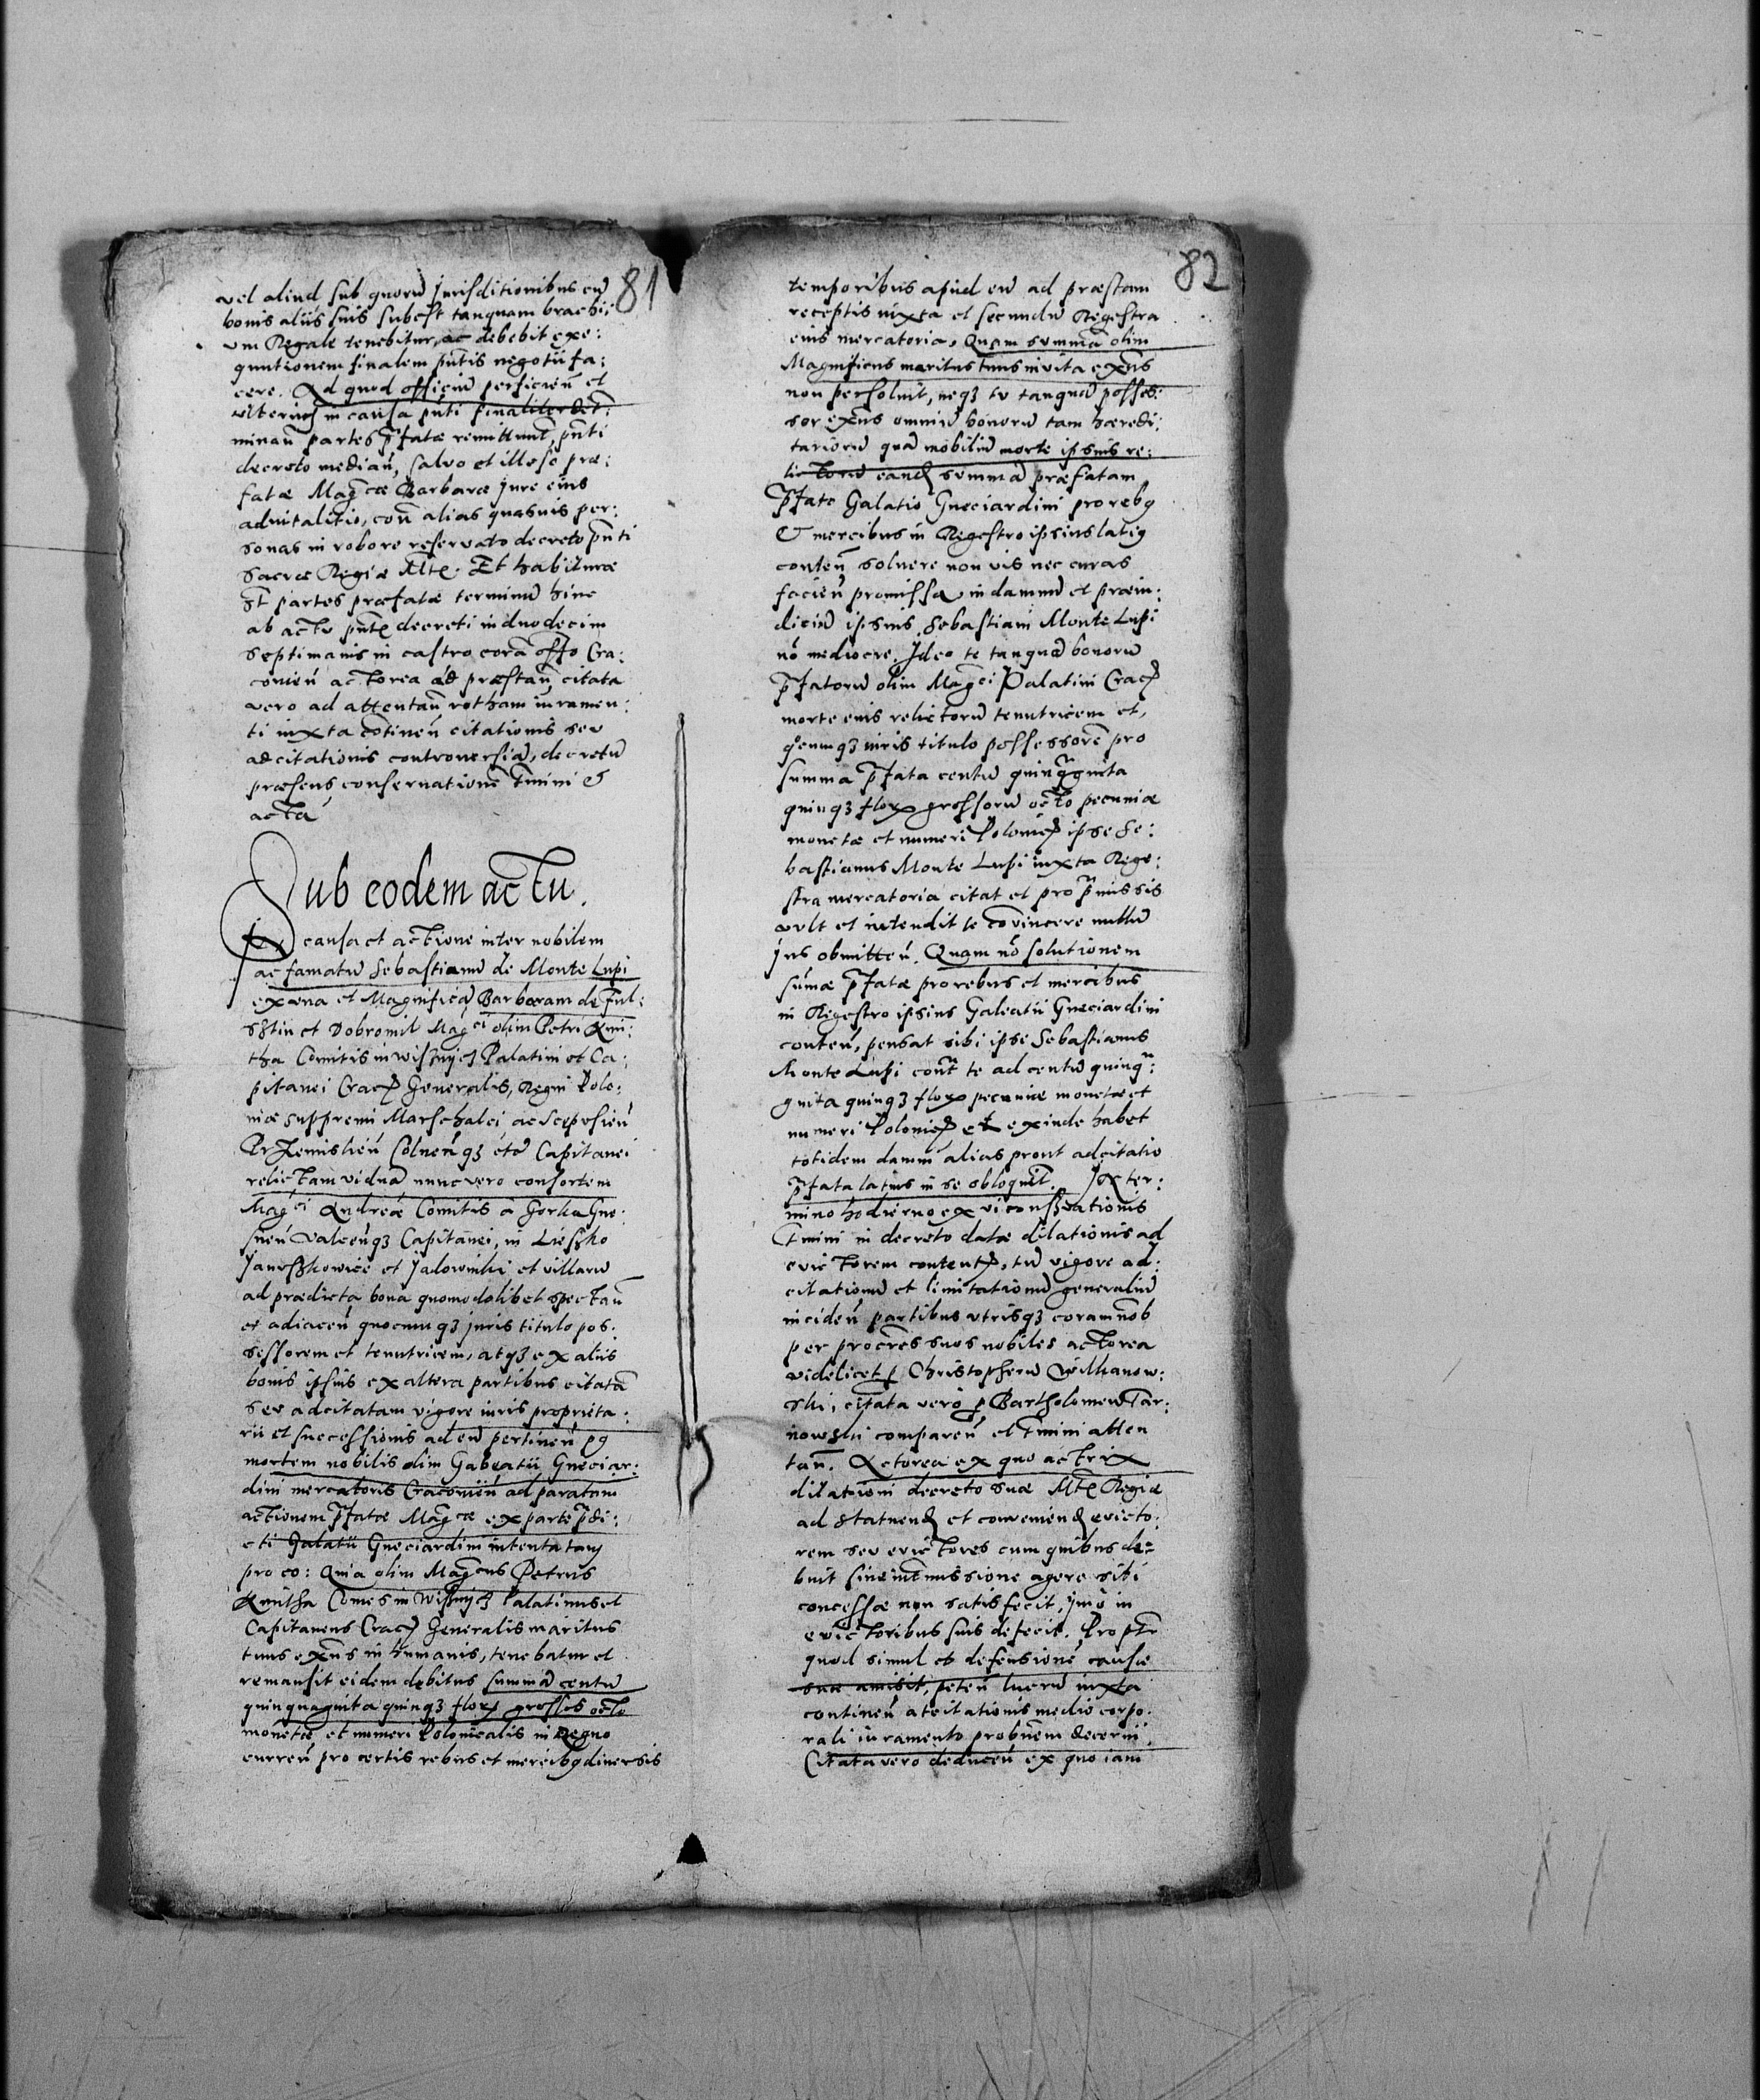 81
vel aliud sub quorũ jurisditionibus eñ
bonis aliis suis subest tanquam brachi:
um Regale tenebitur, ac debebit exe:
quutionem finalem pñtis negotii fa:
cere. Ad quod officiũ perficieñ et
ulterius in causa pñti finaliter det:
minañ partes pfatæ remittunt, pñti
decreto mediañ, salvo et illeso præ:
fatæ Magcæ Barbaræ jure eius
advitalitio, coñ alias quasuis per:
sonas in robore reservato decreto pñti
Sacræ Regiæ Mtis. Et habituræ
sñt partes præfatæ terminũ hinc
ab actu pñtis decreti in duodecim
septimanis in castro corã offo Cra:
covieñ actorea ad præstañ, citata
vero ad attentañ rotham iuramen:
ti iuxta cõtineñ citationis seu
adcitationis controuersiã, decretũ
præsens conseruationẽ tmini et
acta
Sub eodem actu.
In causa et actione inter nobilem
ac famatũ Sebastianũ de Monte Lupi
ex una et Magnificã Barbaram de Ful:
sztin et Dobromil Magci olim Petri Kmi:
tha Comitis in Wisznycz Palatini et Ca:
pitanei Crac Generalis, Regni Polo:
niæ suppremi Marschalci ac Scepesieñ
Przemislieñ Colneñq3 etc Capitanei
relictam viduã nunc vero consortem
Magci Andreæ Comitis a Gorka Gne:
sneñ Valceñq3 Capitanei, in Lieszko
Janrszkowice et Jadowniki et villarũ
ad prædicta bona quomodolibet spectañ
et adiaceñ quocumq3 juris titulo pos:
sessorem et tenutricem, atq3 ex aliis
bonis ipsius ex altera partibus citatã
seu adcitatam vigore iuris proprieta:
rii et successionis ad eũ pertineñ pg
mortem nobilis olim Galeatii Gueciar:
dini mercatoris Cracouieñ ad paratam
actionem pfatæ Magcæ ex parte pdi:
cti Galatii Gueciardini intentatam
pro eo: Quia olim Magcus Petrus
Kmitha Comes in Wisznycz Palatinus et
Capitaneus Crac Generalis maritus
tuus exñs in humanis, tenebatur et
remansit eidem debitus summã centũ
quinquaginta quinq3 flor grosses octo
monetæ et numeri Polonicalis in Regno
curreñ pro certis rebus et mercibg diuersis
82
temporibus apud eũ ad præstam
receptis iuxta et secundũ Regestra
eius mercatoria, Quam summã olim
Magnificus maritus tuus in vita exñs
non persoluit, neq3 tu tanquã posses:
sor exñs omniũ bonorũ tam hæredi:
tariorũ quã mobiliũ morte ipsius re:
lictorũ eand summã præfatam
pfato Galatio Gueciardini pro rebg
et mercibus in Regestro ipsius latig
conteñ soluere non vis nec curas
facieñ promissa in damnũ et præiu:
diciũ ipsius Sebastiani Monte Lupi
nõ mediocre. Ideo te tanquã bonorũ
pfatorũ olim Magci Palatini Crac
morte eius relictorũ tenutricem et,
qcumq3 iuris titulo possessorẽ pro
summa pfata centũ quinqginta
quinq3 flor grossorũ octo pecuniæ
monetæ et numeri Polonic ipse Se:
bastianus Monte Lupi iuxta Rege:
stra mercatoria citat et pro pmissis
vult et intendit te cõvincere nullũ
jus obmitteñ. Quam nõ solutionem
sũmæ pfatæ pro rebus et mercibus
in Regestro ipsius Galeatii Gueciardini
conteñ, pensat sibi ipse Sebastianus
Monte Lupi contr te ad centũ quinq:
ginta quinq3 flor pecuniæ monetæ et
numeri Polonic et exinde habet
totidem damni alias prout adcitatio
pfata latius in se obloquit. Jn ter:
mino hodierno ex vi conseruationis
tmini in decreto datæ dilationis ad
evictorem content, tũ vigore ad:
citationũ et limitationũ generaliũ
incideñ partibus utrisq3 coram nob
per procres suos nobiles actorea
videlicet p Christopherũ Wilkanow:
ski, citata vero p Bartholomeũ Tar:
nowski compareñ et tmini atten
tañ. Actorea ex quo actrix
dilationi decreto suæ Mtis Regiæ
ad statuend et conueniend evicto:
rem seu evictores cum quibus de:
buit sine intmissione agere sibi
concessæ non satisfecit, ymo in
evictoribus suis defecit. Proptr
quod simul et defensionẽ causæ
suæ amisit, peteñ lucrũ iuxta
contineñ atcitationis medio corpo:
rali iuramento probñem decerni,
Citata vero deduceñ ex quo iam